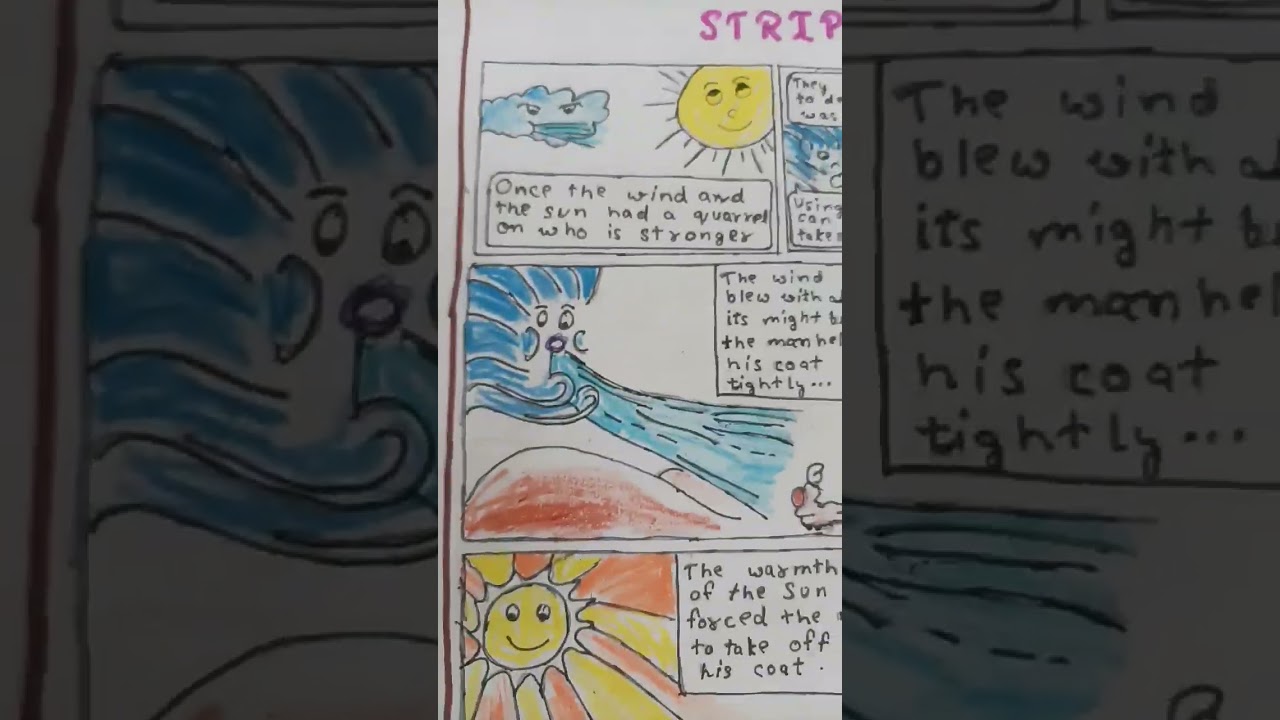 STRIP
Once the wind and
the sun had a quarrel
on who is stronger
They
to de
was
Using
can
take
The wind
blew with al
its might bu
the man hel
his coat
tightly...
The warmth
of the Sun
forced the
to take off
his coat.
The wind
blew with a
its might bu
the man hel
his coat
tightly...